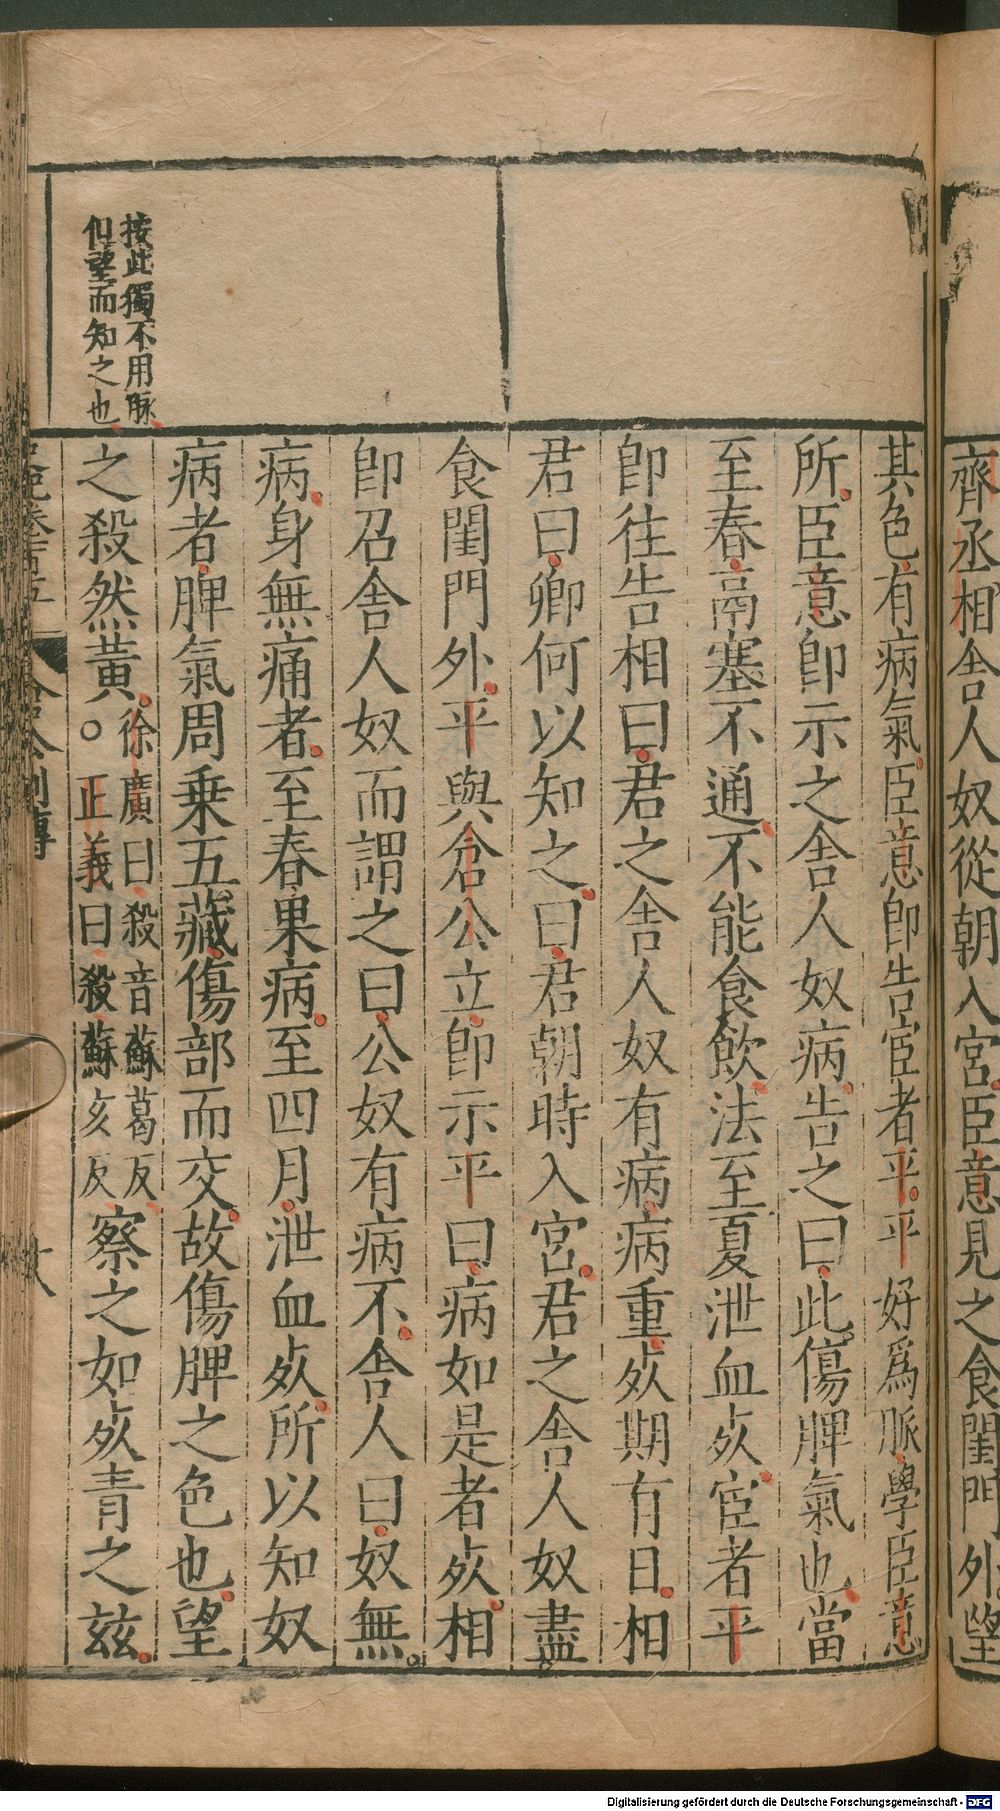 齊丞相舍人奴從朝入宮臣意見之食閨門外望
其色有病氣臣意卽告宦者平平好爲脈學臣意
所臣意卽示之舍人奴病告之曰此傷脾氣也當
至春鬲塞不通不能食飲法至夏泄血死宦者平
卽往告相曰君之舍人奴有病病重死期有日相
君曰卿何以知之曰君朝時入宮君之舍人奴盡
食閨門外平與倉公立卽示平曰病如是者死相
卽召舍人奴而謂之曰公奴有病不舍人曰奴無
病身無痛者至春果病至四月泄血死所以知奴
病者脾氣周乗五藏傷部而交故傷脾之色也望
之殺然黃。徐廣曰殺音蘇葛反
正義曰殺蘇亥反察之如死青之茲
按此獨不用脈
但望而知之也